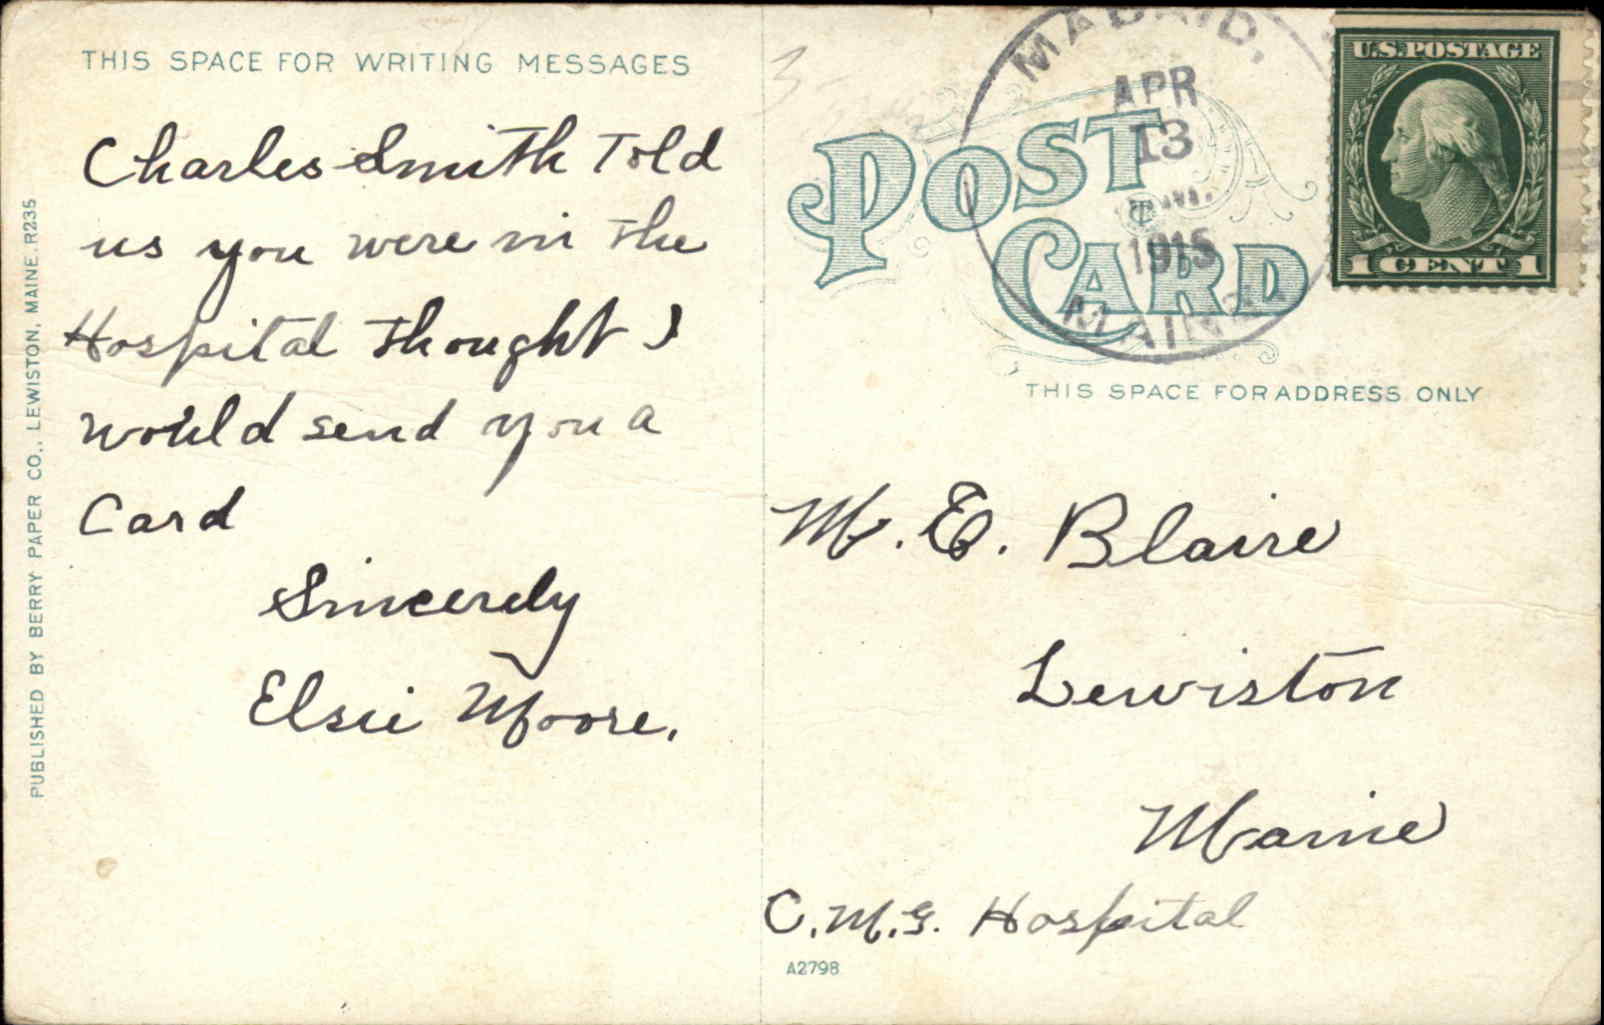 THIS SPACE FOR WRITING MESSAGES
Charles Smith Told
us you were in the
Hospital Thought I
would send you a
Card
Sincerely
Elsie Moore.
PUBLISHED BY BERRY PAPER CO., LEWISTON, MAINE. R235
MADRID,
APR
13
1915
MAINE
U.S. POSTAGE
1 CENT 1
POST
CARD
THIS SPACE FOR ADDRESS ONLY
M. E. Blaire
Lewiston
Maine
C.M.G. Hospital
A2798